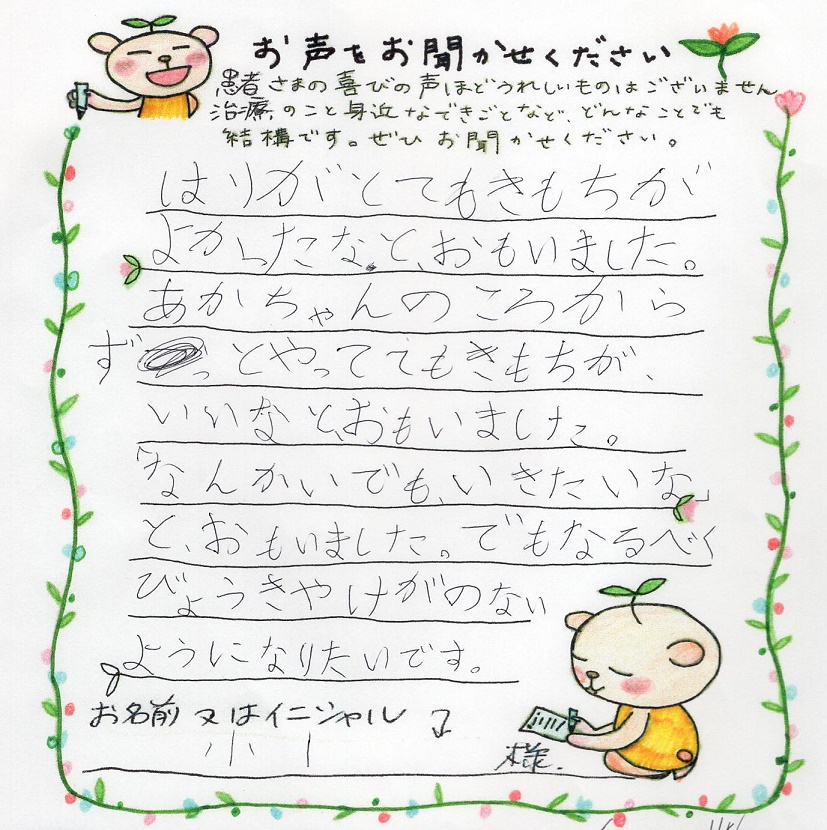 お声をお聞かせください
患者さまの喜びの声ほどうれしいものはございません
治療のこと身近なできごとなど、どんなことでも
結構です。ぜひお聞かせください。
はりがとてもきもちが
よかったな。と、おもいました。
あかちゃんのころから
ずっとやっててもきもちが、
いいなと、おもいました。
「なんかいでも、いきたいな」
と、おもいました。でもなるべく
びょうきやけがのない
ようになりたいです。
お名前又はイニシャル
様.